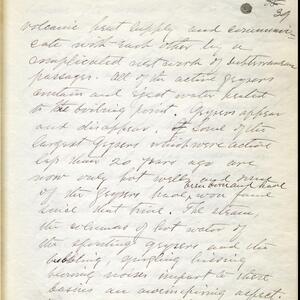 39
volcanic heat supply and communi-
cate with each other by a
complicated net work of subterranean
passages. All of the active geysers
contain and eject water heated
to the boiling point. Geysers appear
and disappear. Some of the
largest Geysers which were active
less than 20 years ago are
now only hot wells and some
of the Geysers have won fame
since that time. The steam,
the columns of hot water of
the spouting geysers and the
bubbling, gurgling hissing
noises impart to these
basins an awe inspiring aspect.